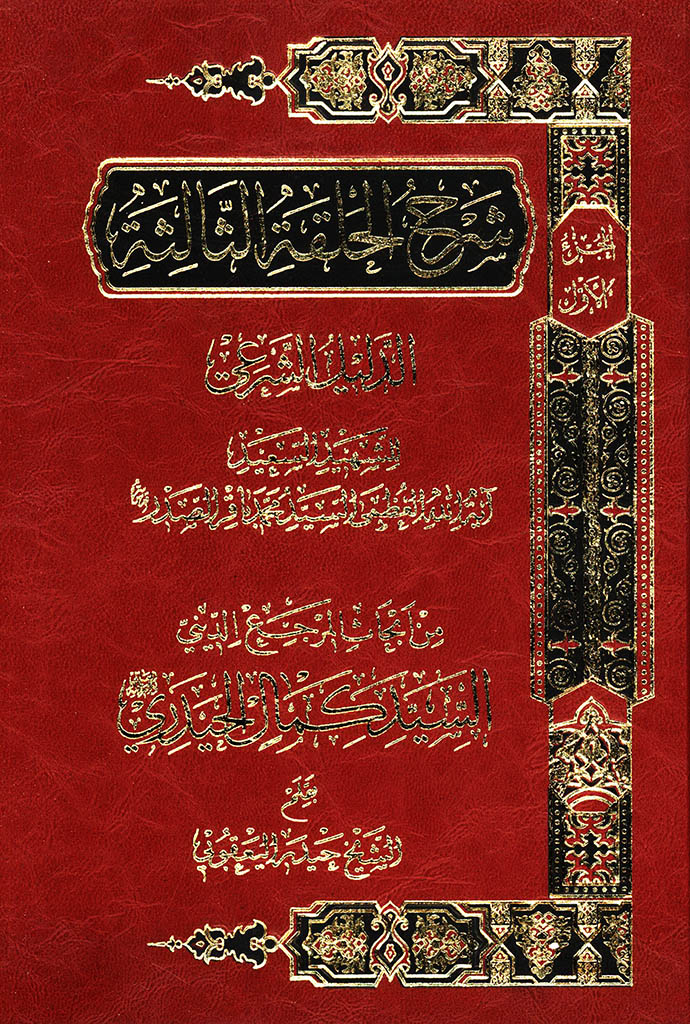 شرح الحلقة الثالثة
الجزء
الأول
الدليل الشرعي
للشهيد السعيد
آية الله العظمى السيد محمد باقر الصدر
من أبحاث المرجع الديني
السيد كمال الحيدري
بقلم
الشيخ حيدر اليعقوبي